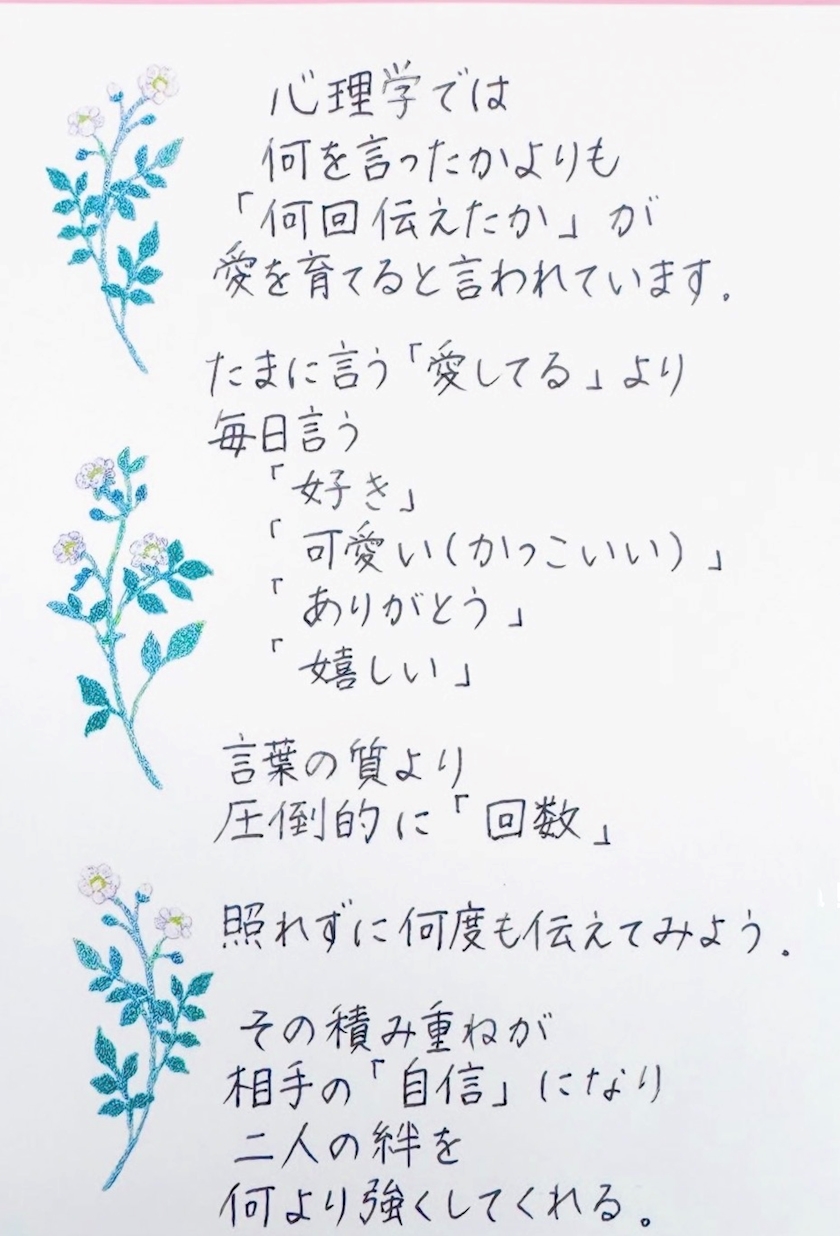 心理学では
何を言ったかよりも
「何回伝えたか」が
愛を育てると言われています.
たまに言う「愛してる」より
毎日言う
「好き」
「可愛い(かっこいい)」
「ありがとう」
「嬉しい」
言葉の質より
圧倒的に「回数」
照れずに何度も伝えてみよう.
その積み重ねが
相手の「自信」になり
二人の絆を
何より強くしてくれる。